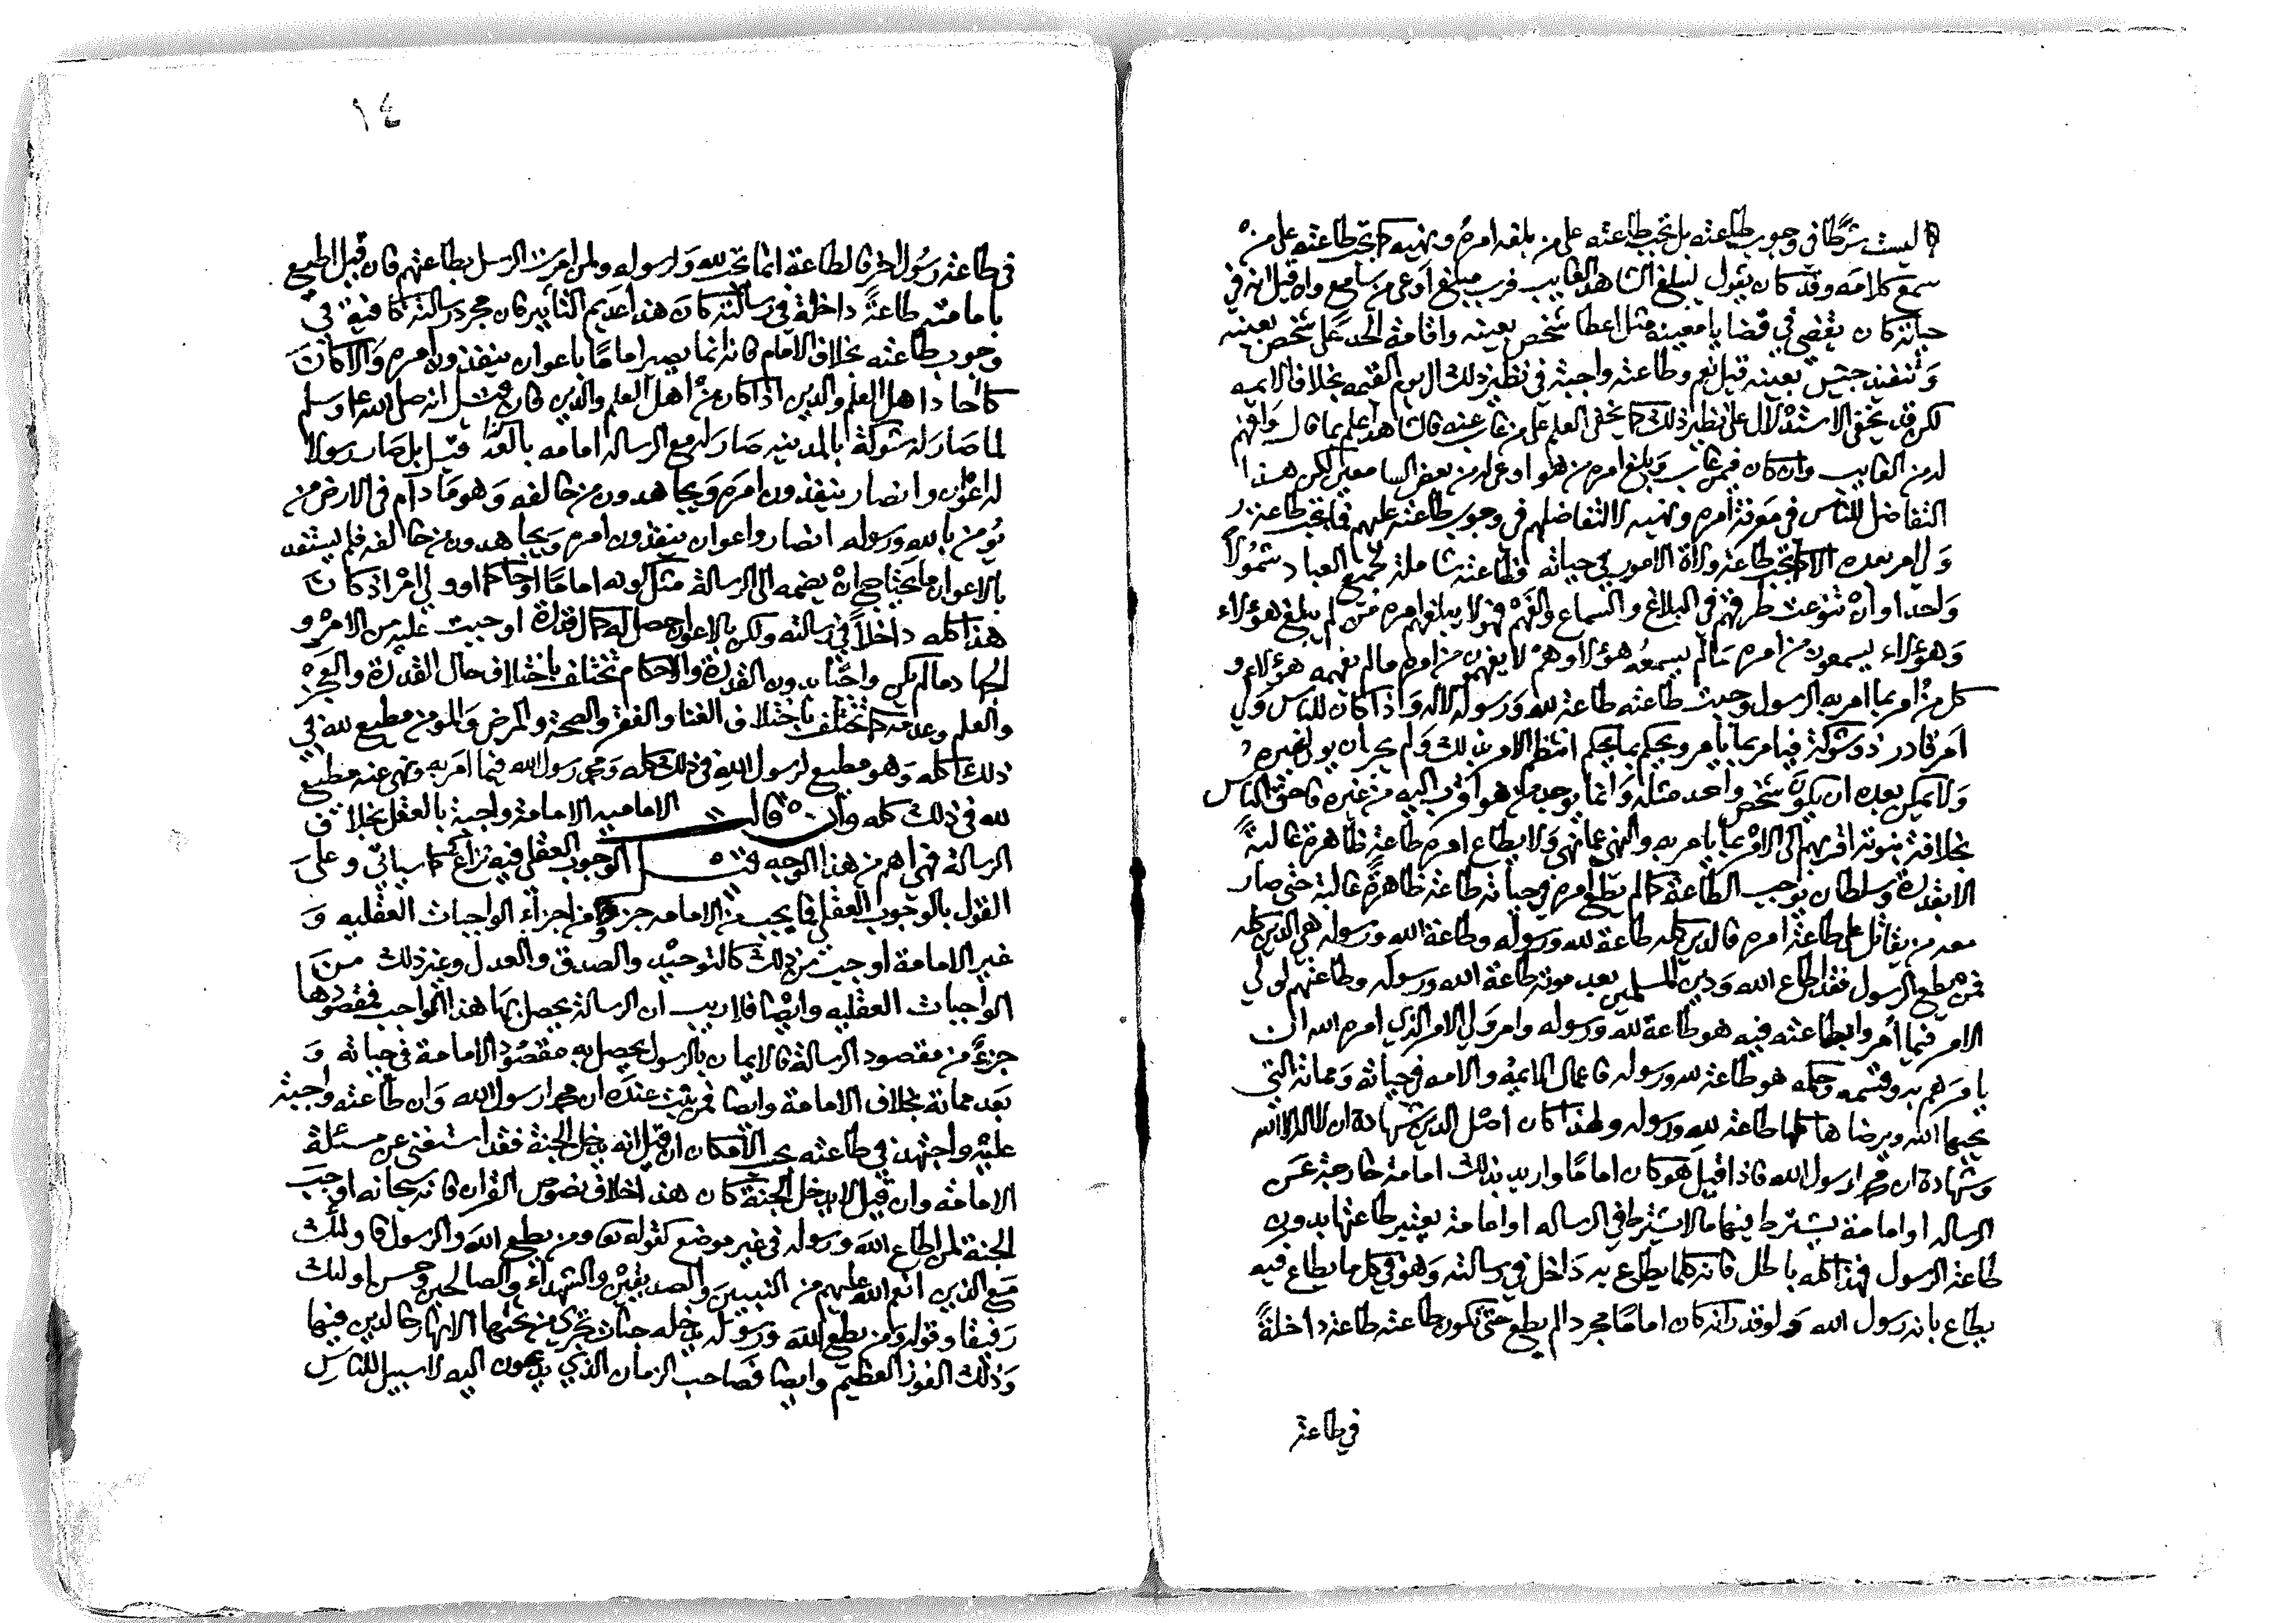 ليست شرطا في وجوب طاعته بل تجب طاعته على من بلغه امره ونهيه كما تجب طاعته على من
سمع كلامه وقد كان يقول ليبلغ الشاهد الغايب فرب مبلغ اوعى من سامع وان قيل انه في
حياته كان يقضي في قضايا معينه مثل اعطا شخص بعينه واقامة الحد على شخص بعينه
وتنفيذ جيش بعينه قيل نعم وطاعته واجبة في نظير ذلك الى يوم القيمه بخلاف الايمه
لكن قد يخفى الاستدلال على نظير ذلك كما يخفى العلم على من غاب عنه فالشاهد اعلم بما قال وافهم
له من الغايب وان كان فيمن غاب وبلغ امره من هو اوعى له من بعض السامعين لكن هذا
التفاضل للناس في معرفة امره ونهيه لا لتفاضلهم في وجوب طاعته عليهم فما تجب طاعة
ولي امر بعده الا كما تجب طاعة ولاة الامور في حياته فطاعته شاملة لجميع العباد شمولا
واحدا وان تنوعت طرقهم في البلاغ والسماع والفهم فهولا يبلغهم من امره ما لم يبلغ هؤلاء
وهؤلاء يسمعون من امره ما لم يسمعه هؤلا وهؤلا يفهمون من امره ما لم يفهمه هؤلاء و
كل من امر بما امر به الرسول وجبت طاعته طاعة لله ورسوله لا له واذا كان للناس ولي
امر قادر ذو شوكة فيامر بما يأمر ويحكم بما يحكم انتظم الامر بذلك ولم يجز ان يولى غيره
ولا يمكن بعده ان يكون شخص واحد مثله وانما يوجد من هو اقرب اليه من غيره فاحق الناس
بخلافة نبوته اقربهم الى الامر بما يامر به والنهي عما نهى ولا يطاع امره طاعة ظاهرة غالبة
الا بقدرة وسلطان يوجب الطاعة كما لم يطع امره في حياته طاعة ظاهرة غالبة حتى صار
معه من يقاتل على طاعة امره فالدين كله طاعة لله ورسوله وطاعة الله ورسوله هي الدين كله
فمن يطع الرسول فقد اطاع الله ودين المسلمين بعد موته طاعة الله ورسوله وطاعتهم لولي
الامر فيما أمروا بطاعته فيه هو طاعة لله ورسوله وامر ولي الامر الذي امره الله ان
يامرهم به وقسمه وحكمه هو طاعة لله ورسوله فاعمال الايمة والامه في حياته ومماته التي
يحبها الله ويرضاها كلها طاعة لله ورسوله ولهذا كان اصل الدين شهادة ان لا اله الا الله
وشهادة ان محمدا رسول الله فاذا قيل هو كان اماما واريد بذلك امامة خارجة عن
الرساله او امامة يشترط فيها ما لا يشترط في الرساله او امامة يعتبر طاعتها بدون
طاعة الرسول فهذا كله باطل فانه كلما يطاع به داخل في رسالته وهو في كل ما يطاع فيه
يطاع بانه رسول الله ولو قدر انه كان اماما مجردا لم يطع حتى تكون طاعته طاعة داخلة
في طاعة
١٤
في طاعة رسول اخر فالطاعة انما تجب لله ولرسوله ولمن امرت الرسل بطاعتهم فان قيل اطيع
بامامته طاعة داخلة في رسالته كان هذا عديم التأثير فان مجرد رسالته كافية في
وجوب طاعته بخلاف الامام فانه انما يصير اماما باعوان ينفذون امره والا كان
كاحاد اهل العلم والدين اذا كان من اهل العلم والدين فان قيل انه صلى الله عليه وسلم
لما صار له شوكة بالمدينه صار له مع الرساله امامه بالقدرة قيل بل صار رسولا
له اعوان وانصار ينفذون امره ويجاهدون من خالفه وهو ما دام في الارض من
يؤمن بالله ورسوله انصار واعوان ينفذون امره ويجاهدون من خالفه فلم يستفد
بالاعوان ما يحتاج ان يضمه الى الرسالة مثل كونه اماما او حاكما او ولي امر اذ كان
هذا كله داخلا في رسالته ولكن بالاعوان حصل له كمال قدرة اوجبت عليه من الامر و
الجهاد ما لم يكن واجبا بدون القدرة والاحكام تختلف باختلاف حال القدرة والعجز
والعلم وعدمه كما تختلف باختلاف الغنا والفقر والصحة والمرض والمومن مطيع لله في
ذلك كله وهو مطيع لرسول الله في ذلك كله ومحمد رسول الله فيما امر به ونهى عنه مطيع
لله في ذلك كله وان قالت الاماميه الامامة واجبة بالعقل بخلاف
الرسالة فهي اهم من هذا الوجه قيل الوجوب العقلي فيه نزاع كما سيأتي وعلى
القول بالوجوب العقلي فما يجب من الامامه جزو من اجزآء الواجبات العقليه و
غير الامامة اوجب من ذلك كالتوحيد والصدق والعدل وغير ذلك من
الواجبات العقليه وايضا فلا ريب ان الرسالة يحصل بها هذا الواجب فمقصودها
جزء من مقصود الرسالة فالايمان بالرسول يحصل به مقصود الامامة في حياته و
بعد مماته بخلاف الامامة وايضا فمن ثبت عنده ان محمدا رسول الله وان طاعته واجبة
عليه واجتهد في طاعته بحسب الامكان ان قيل انه يدخل الجنة فقد استغنى عن مسئلة
الامامة وان قيل لا يدخل الجنة كان هذا خلاف نصوص القران فانه سبحانه اوجب
الجنة لمن اطاع الله ورسوله في غير موضع كقوله تعالى ومن يطع الله والرسول فاولئك
مع الذين انعم الله عليهم من النبيين والصديقين والشهداء والصالحين وحسن اولئك
رفيقا وقوله ومن يطع الله ورسوله يدخله جنات تجري من تحتها الانهار خالدين فيها
وذلك الفوز العظيم وايضا فصاحب الزمان الذي يدعون اليه لا سبيل للناس